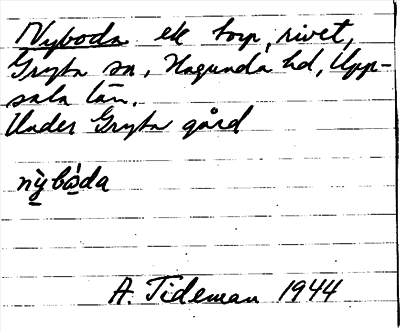 Nyboda ek torp, rivet,
Gryta sn, Hagunda hd, Upp-
sala län.
Under Gryta gård
nỳbòda
A. Tideman 1944